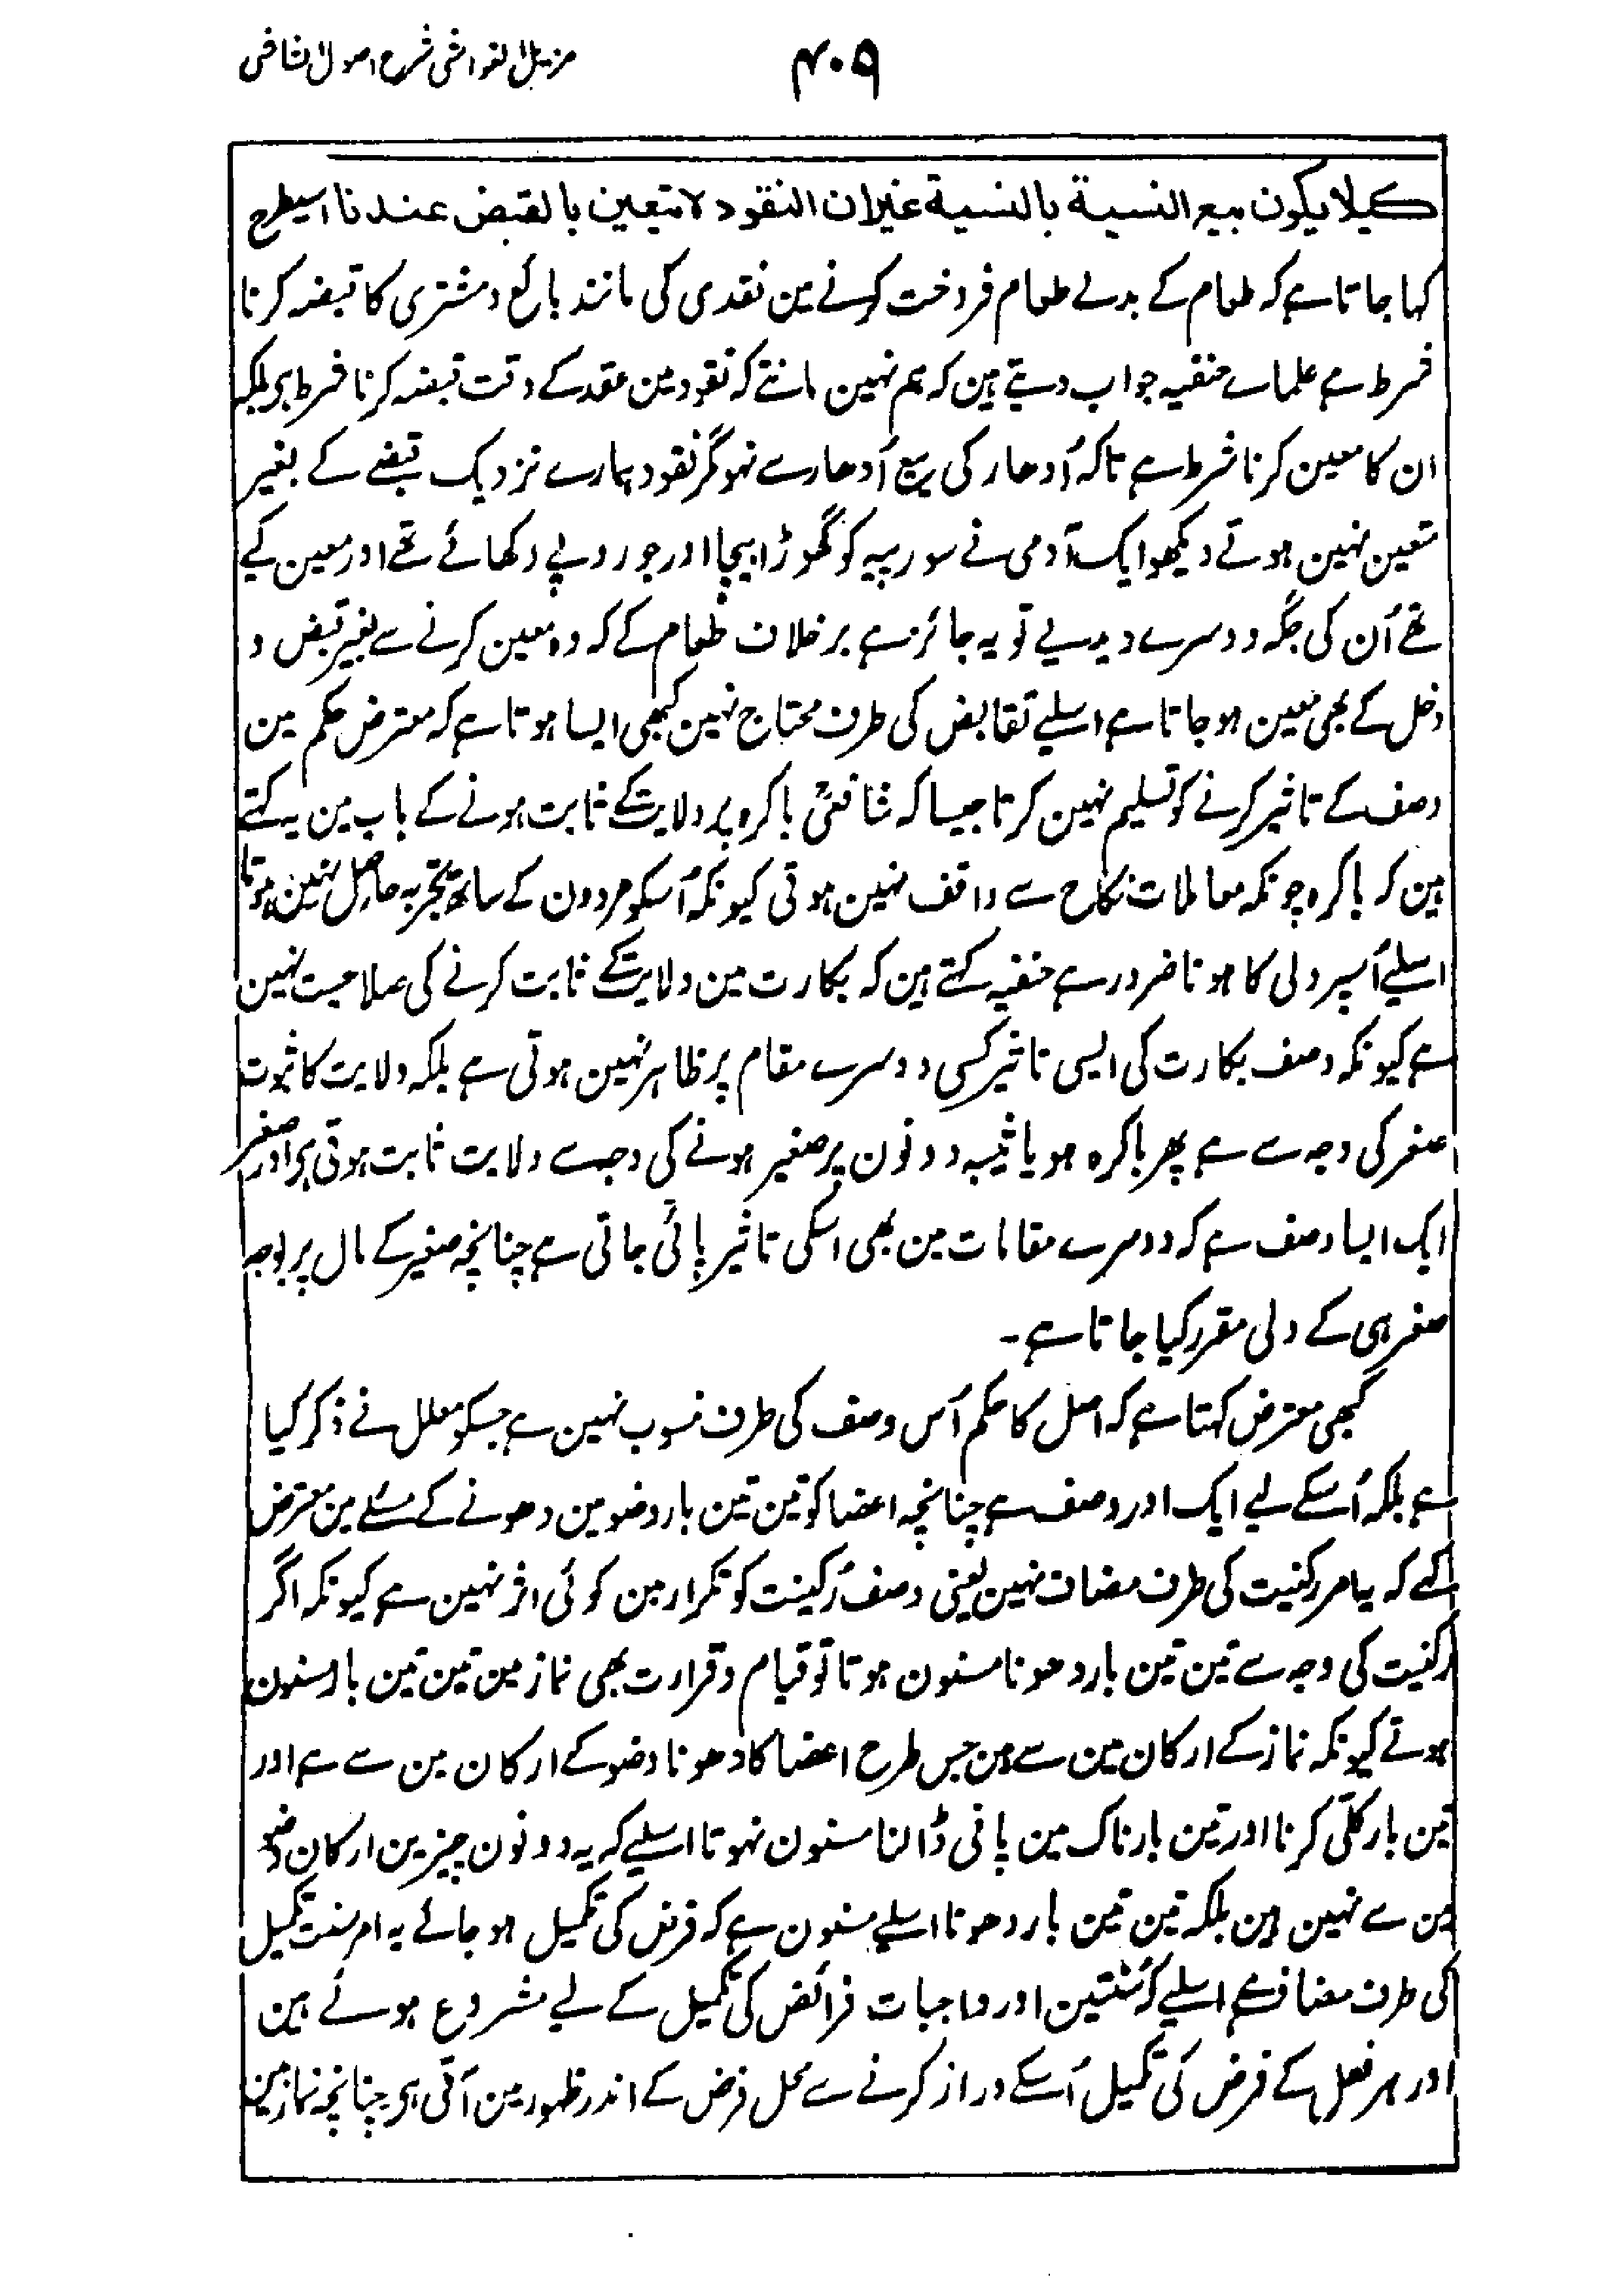 مزیل الغواشی شرح اصول الشاشی
۴۰۹
کیلا یکون بیع النسیة بالنسیة غیران النقود لا تتعین بالقبض عندنا اسیطرح
کہا جاتا ہے کہ طعام کے بدلے طعام فروخت کرنے مین نقدی کی مانند بائع و مشتری کا قبضہ کرنا
شرط ہے علماے حنفیہ جواب دیتے ہین کہ ہم نہین مانتے کہ نقود مین عقد کے وقت قبضہ کرنا شرط ہی بلکہ
ان کا معین کرنا شرط ہے تاکہ اُدھار کی بیع اُدھار سے نہو مگر نقود ہمارے نزدیک قبضے کے بغیر
متعین نہین ہوتے دیکھو ایک آدمی نے سو روپیہ کو گھوڑا بیچا اور جو روپے دکھائے تھے اور معین کیے
تھے اُن کی جگہ دوسرے دیدیے تو یہ جائز ہے برخلاف طعام کے کہ وہ معین کرنے سے بغیر قبض و
دخل کے بھی معین ہو جاتا ہے اسلیے تقابض کی طرف محتاج نہین کبھی ایسا ہوتا ہے کہ معترض حکم مین
وصف کے تاثیر کرنے کو تسلیم نہین کرتا جیسا کہ شافعیؒ باکرہ پر ولایت کے ثابت ہونے کے باب مین یہ کہتے
ہین کہ باکرہ چونکہ معاملات نکاح سے واقف نہین ہوتی کیونکہ اُسکو مردون کے ساتھ تجربہ حاصل نہین ہوتا
اسلیے اُسپر ولی کا ہونا ضرور ہے حنفیہ کہتے ہین کہ بکارت مین ولایت کے ثابت کرنے کی صلاحیت نہین
ہے کیونکہ وصف بکارت کی ایسی تاثیر کسی دوسرے مقام پر ظاہر نہین ہوتی ہے بلکہ ولایت کا ثبوت
صغر کی وجہ سے ہے پھر باکرہ ہو یا ثیبہ دونون پر صغیر ہونے کی وجہ سے ولایت ثابت ہوتی ہی اور صغر
ایک ایسا وصف ہے کہ دوسرے مقامات مین بھی اسکی تاثیر پائی جاتی ہے چنانچہ صغیر کے مال پر بوجہ
صغر ہی کے ولی مقرر کیا جاتا ہے۔
کبھی معترض کہتا ہے کہ اصل کا حکم اُس وصف کی طرف منسوب نہین ہے جسکو معلل نے ذکر کیا
ہے بلکہ اُسکے لیے ایک اور وصف ہے چنانچہ اعضا کو تین تین بار وضو مین دھونے کے مسئلے مین معترض
کہے کہ یہ امر رکنیت کی طرف مضاف نہین یعنی وصف رُکنیت کو تکرار مین کوئی اثر نہین ہے کیونکہ اگر
رکنیت کی وجہ سے تین تین بار دھونا مسنون ہوتا تو قیام و قراءت بھی نماز مین تین تین بار مسنون
ہوتے کیونکہ نماز کے ارکان مین سے ہین جس طرح اعضا کا دھونا وضو کے ارکان مین سے ہے اور
تین بار کلّی کرنا اور تین بار ناک مین پانی ڈالنا مسنون نہوتا اسلیے کہ یہ دونون چیزین ارکان وضو
مین سے نہین ہین بلکہ تین تین بار دھونا اسلیے مسنون ہے کہ فرض کی تکمیل ہو جائے یہ امر سنت تکمیل
کی طرف مضاف ہے اسلیے کہ سُنتین اور واجبات فرائض کی تکمیل کے لیے مشروع ہوئے ہین
اور ہر فعل کے فرض کی تکمیل اُسکے دراز کرنے سے محل فرض کے اندر ظہور مین آتی ہی چنانچہ نماز مین